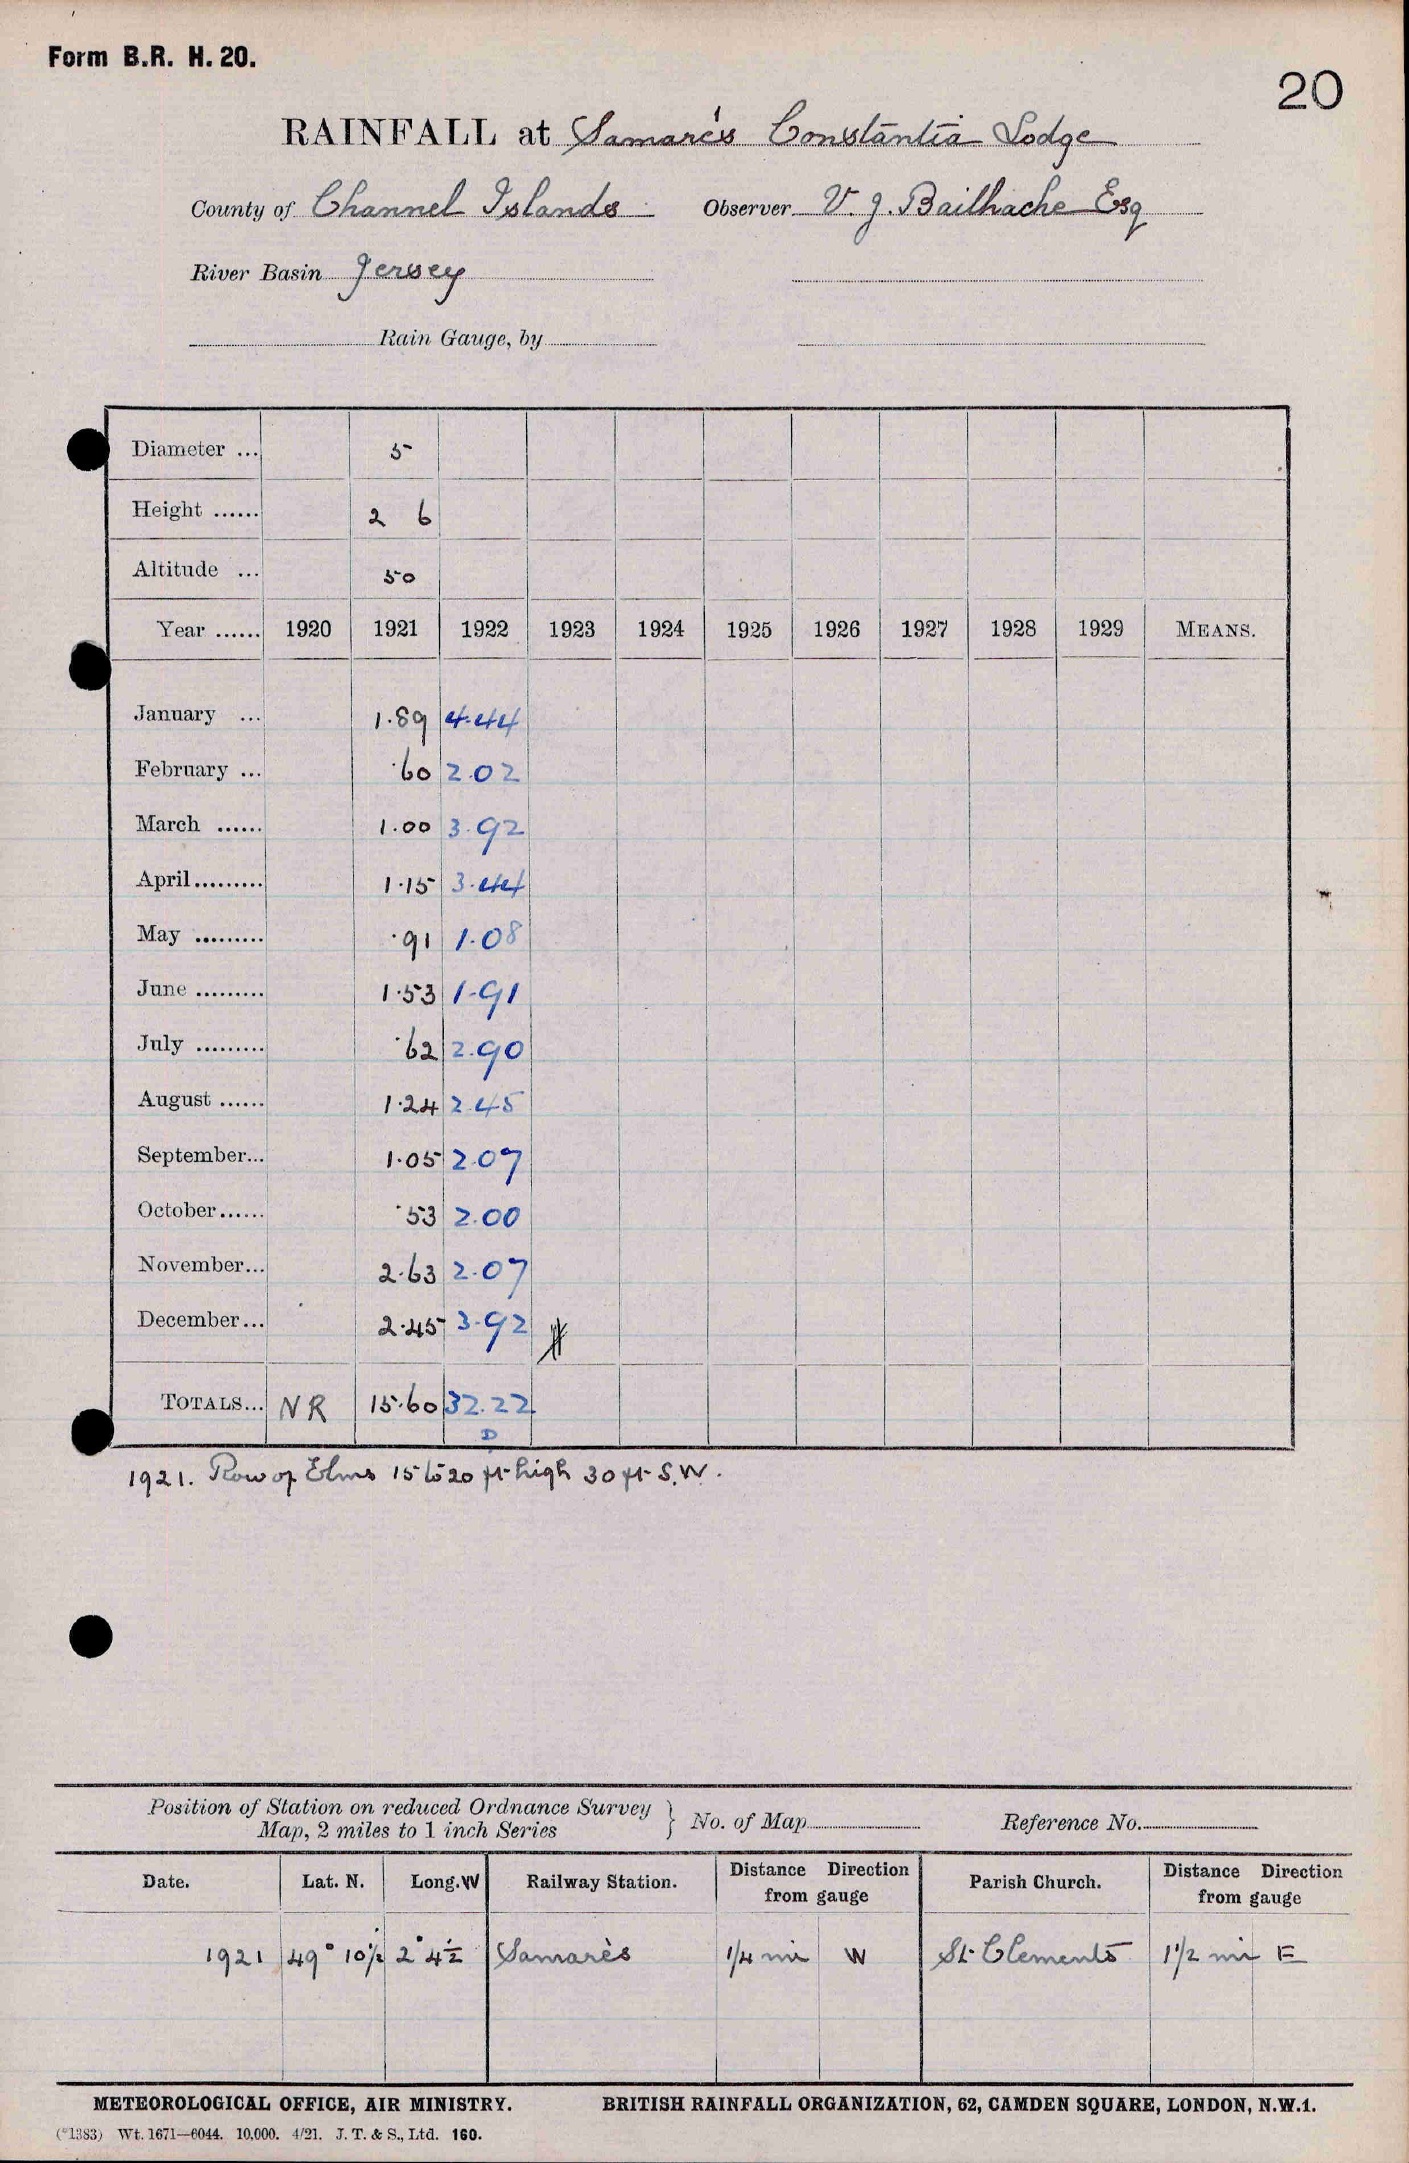 Form B.R. H. 20.
20
RAINFALL at Samarés Constantia Lodge
County of Channel Islands Observer V. J. Bailhache Esq
River Basin Jersey
Rain Gauge, by
Diameter ... 5
Height ...... 2 6
Altitude ... 50
Year ...... 1920 1921 1922 1923 1924 1925 1926 1927 1928 1929 MEANS.
January ... 1.89 4.44
February ... .60 2.02
March ...... 1.00 3.92
April......... 1.15 3.44
May ......... .91 1.08
June ......... 1.53 1.91
July ......... .62 2.90
August ...... 1.24 2.45
September... 1.05 2.07
October...... .53 2.00
November... 2.63 2.07
December... 2.45 3.92
TOTALS... NR 15.60 32.22
D
1921. Row of Elms 15 to 20 ft high 30 ft S.W.
Position of Station on reduced Ordnance Survey
Map, 2 miles to 1 inch Series } No. of Map Reference No.
Date. Lat. N. Long. W Railway Station. Distance Direction from gauge Parish Church. Distance Direction from gauge
1921 49° 10½ 2° 4½ Samarès 1/4 mi W St Clements 1½ mi E
METEOROLOGICAL OFFICE, AIR MINISTRY. BRITISH RAINFALL ORGANIZATION, 62, CAMDEN SQUARE, LONDON, N.W.1.
(*1383) Wt. 1671—6044. 10,000. 4/21. J. T. & S., Ltd. 160.